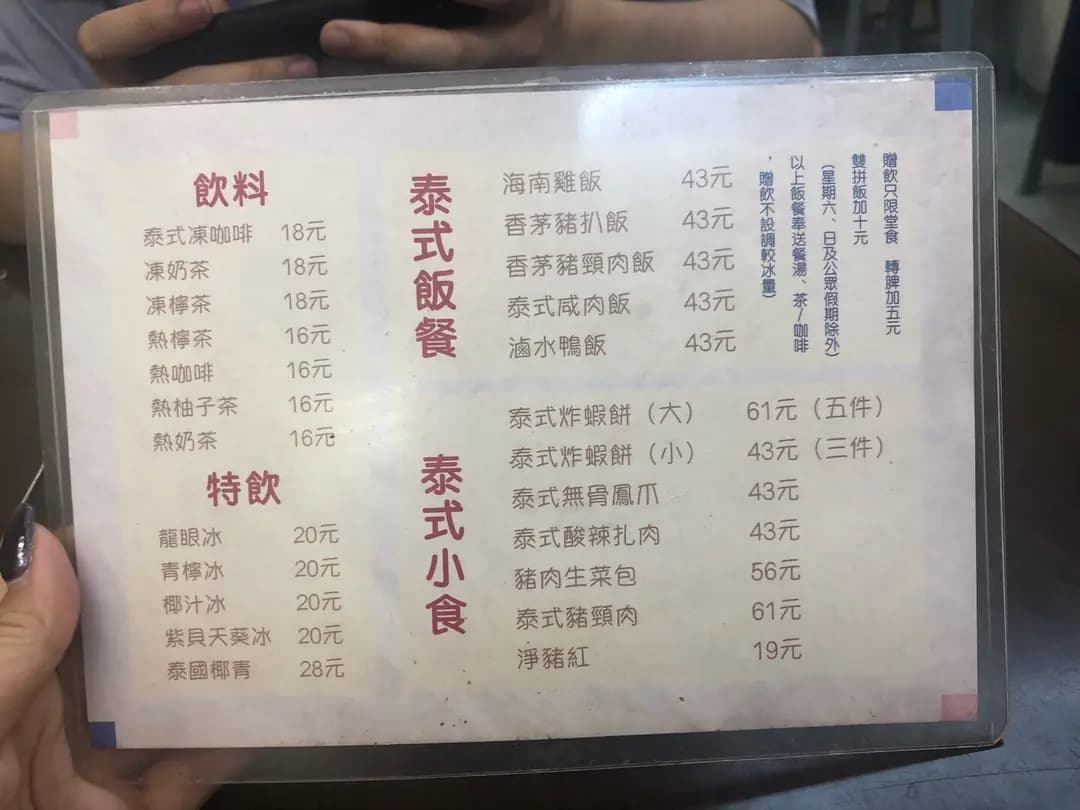 飲料
泰式凍咖啡 18元
凍奶茶 18元
凍檸茶 18元
熱檸茶 16元
熱咖啡 16元
熱柚子茶 16元
熱奶茶 16元
特飲
龍眼冰 20元
青檸冰 20元
椰汁冰 20元
紫貝天葵冰 20元
泰國椰青 28元
泰式飯餐
海南雞飯 43元
香茅豬扒飯 43元
香茅豬頸肉飯 43元
泰式咸肉飯 43元
滷水鴨飯 43元
贈飲只限堂食 轉脾加五元
雙拼飯加十元
（星期六、日及公眾假期除外）
以上飯餐奉送餐湯、茶/咖啡
，贈飲不設調較冰量）
泰式小食
泰式炸蝦餅（大） 61元（五件）
泰式炸蝦餅（小） 43元（三件）
泰式無骨鳳爪 43元
泰式酸辣扎肉 43元
豬肉生菜包 56元
泰式豬頸肉 61元
淨豬紅 19元